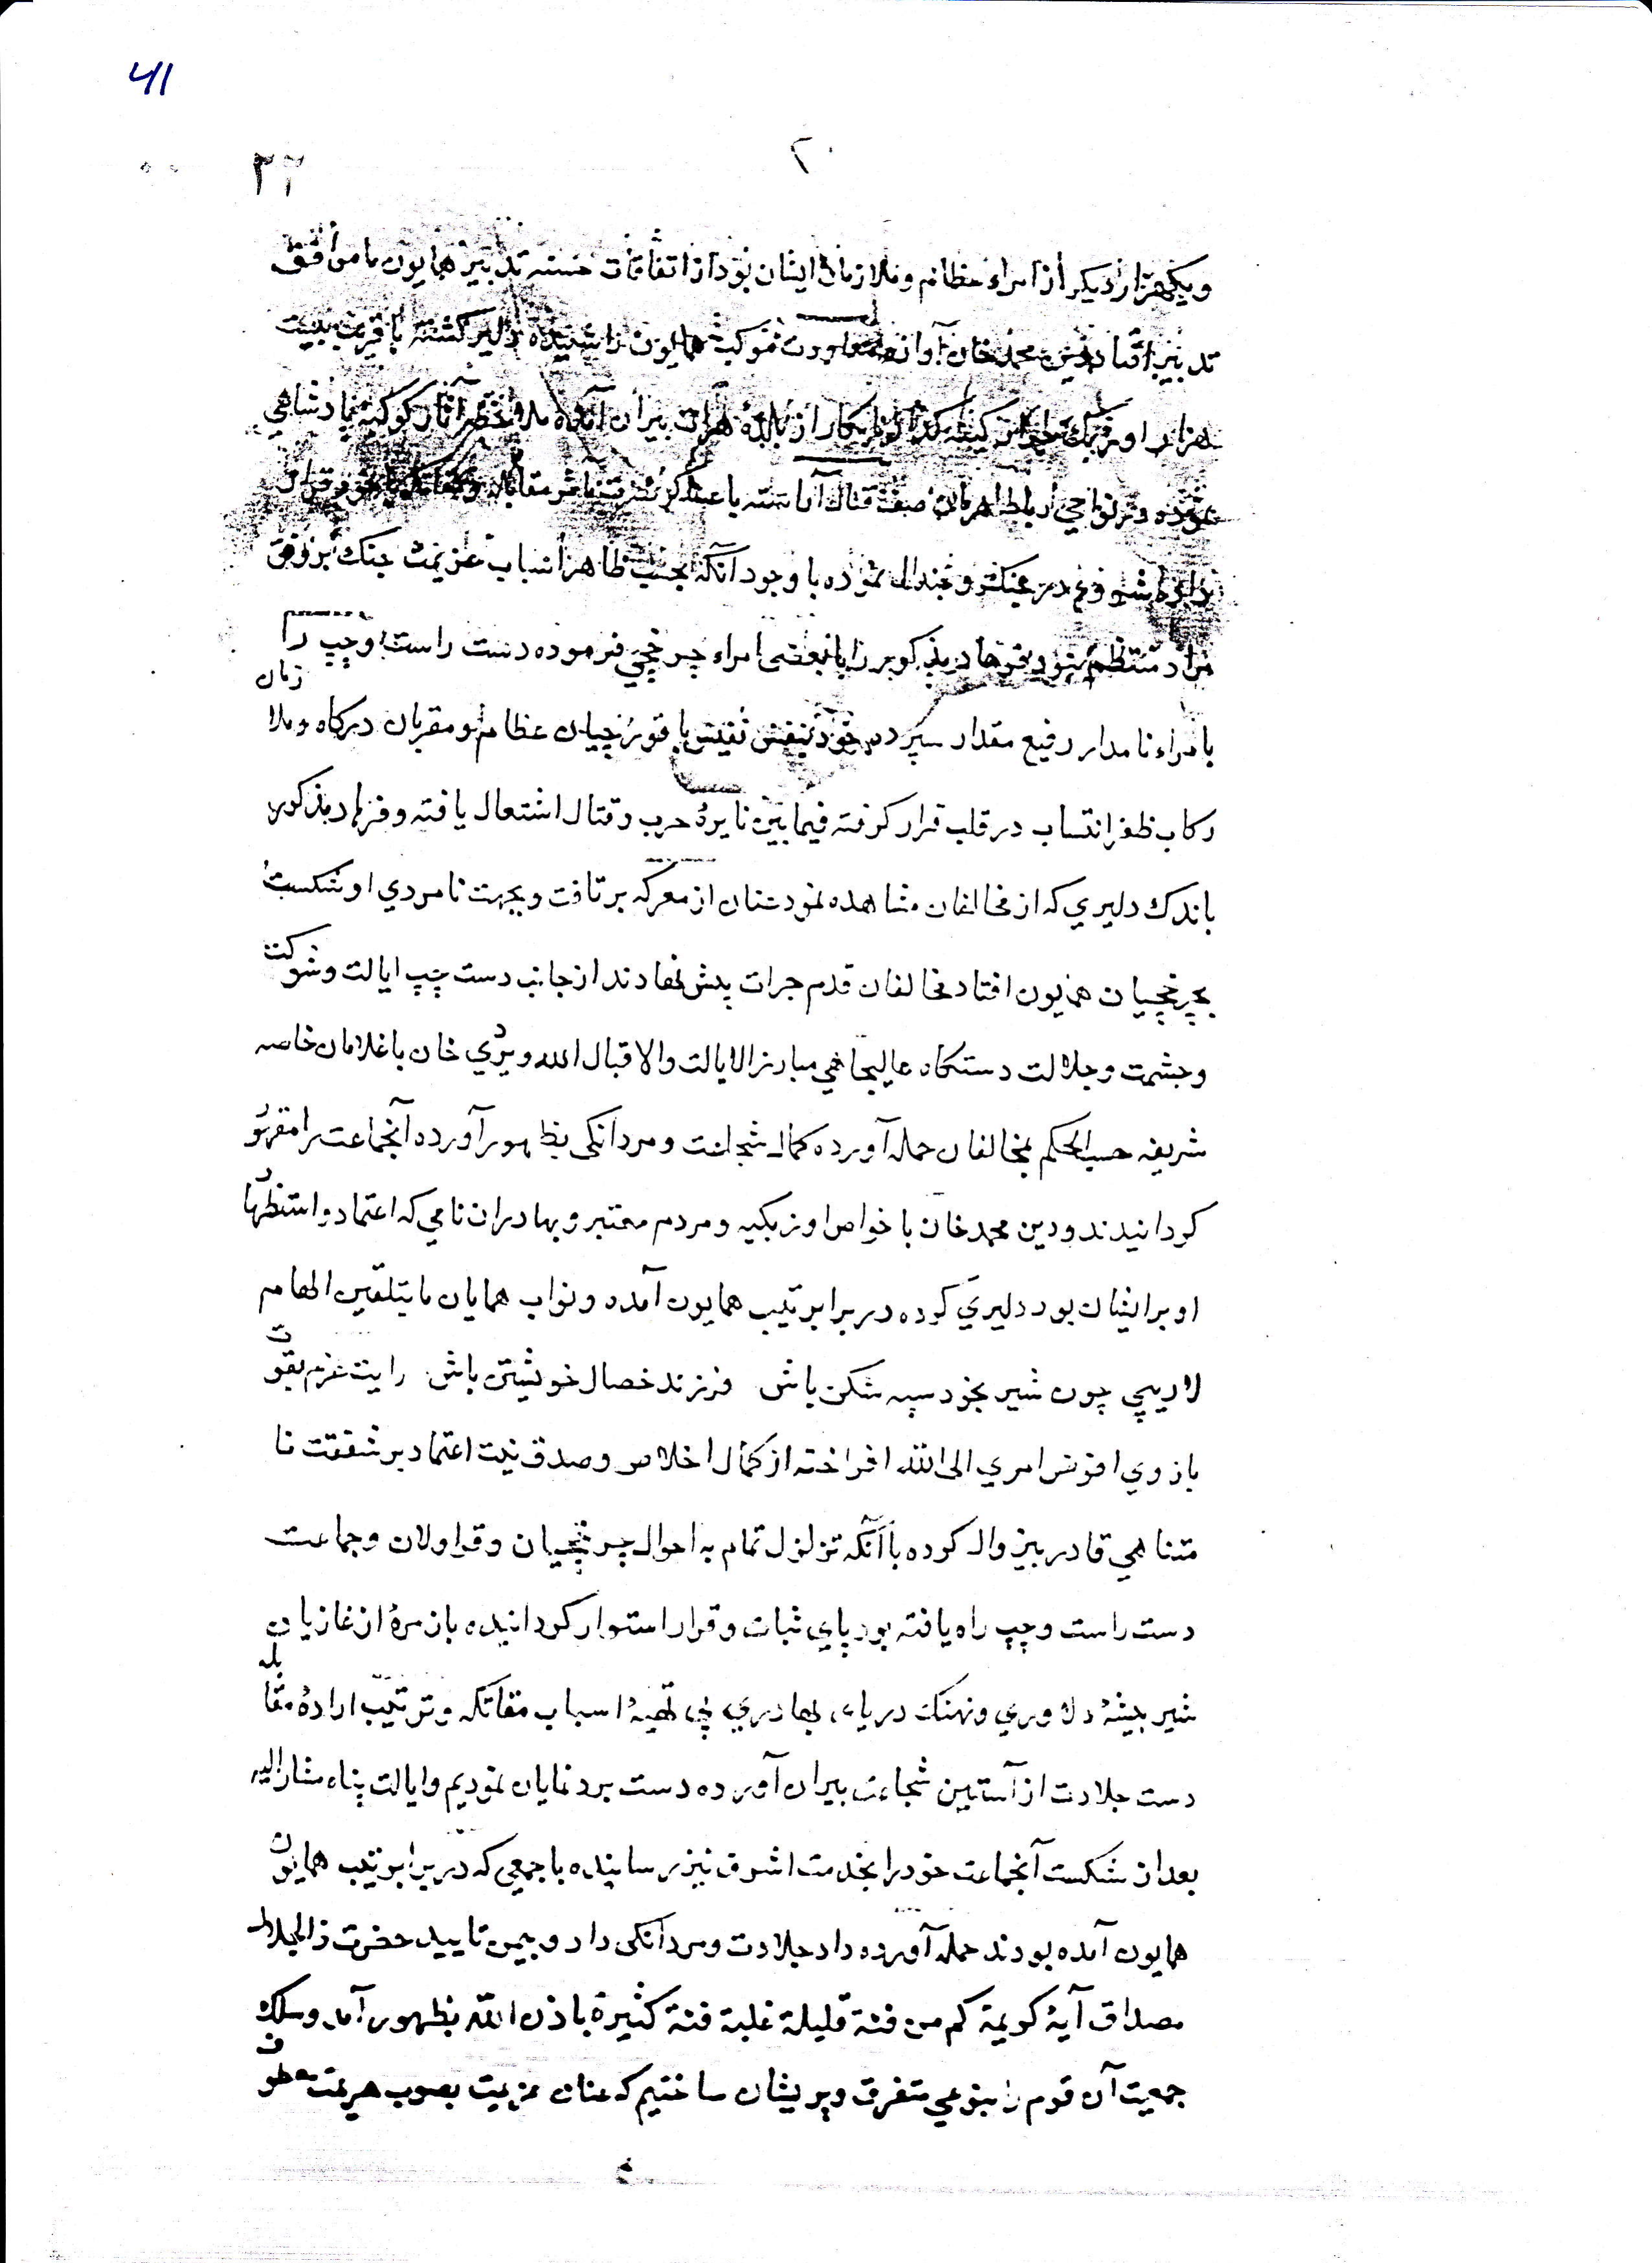 41
۲۰
۳۲
ویکهزار دیکر از امراء عظام و ملازمان ایشان بود از اتفاقات حسنه تدبیر همایون ما موافق
تدبیر افتاد دین محمد خان آوازه معاودت موکب همایون را شنیده دلیر کشته با قریب بیست
هزار اوزبک از بلده هرات بیران آمده ملاحظه آثار کوکبه پادشاهی
نموده در نواحی رباط صف قتال آراسته با عساکر مقابله و
داده شروع در جنک و جدال نموده با وجود آنکه بحسب ظاهر اسباب عزیمت جنک بر وفق
مراد منتظم نبود فرهاد مذکور را با بعضی امراء چرخچی فرموده دست راست وچپ را
بامراء نامدار رفیع مقدار سپرده خود بنفس نفیس با قورچیان عظام و مقربان درکاه وملا زمان
رکاب ظفر انتساب در قلب قرار کرفته فیمابین نایرهٔ حرب و قتال اشتعال یافته و فرهاد مذکور
باندک دلیری که از مخالفان مشاهده نمود عنان از معرکه برتافت و بجهت نامردی او شکست
بچرخچیان همایون افتاد مخالفان قدم جرات پیش نهادند از جانب دست چپ ایالت وشوکت
وحشمت وجلالت دستکاه عالیجاهی مبارز الایالت والاقبال الله ویردی خان با غلامان خاصه
شریفه حسب الحکم بمخالفان حمله آورده کمال شجاعت و مردانکی بظهور آورده آنجماعت را مقهور
کردانیدند ودین محمد خان با خواص اوزبکیه و مردم معتبر و بهادران نامی که اعتماد و استظهار
او بر ایشان بود دلیری کرده در برابر تیپ همایون آمده و نواب همایان ما بتلقین الهام
لاریبی چون شیر بخود سپه شکن باش فرزند خصال خویشتن باش رایت عزم بقوت
بازوی افوض امری الی الله افراخته از کمال اخلاص وصدق نیت اعتماد بر شفقت نا
متناهی قادر بیزوال کرده باآنکه تزلزل تمام به احوال چرخچیان و قراولان وجماعت
دست راست وچپ راه یافته بود پای ثبات وقرار استوار کردانیده بازمرهٔ از غازیان
شیر بیشهٔ دلاوری ونهنک دریاء بهادری پی تهیهٔ اسباب مقاتله وترتیب ارادهٔ مقابله
دست جلادت از آستین شجاعت بیران آورده دست برد نمایان نمودیم وایالت پناه مشارالیه
بعد از شکست آنجماعت خود را بخدمت اشرف نیز رسانیده با جمعی که در برابر تیپ همایون
همایون آمده بودند حمله آورده داد جلادت ومردانکی داد و بیمن تایید حضرت ذالجلال
مصداق آیهٔ کویمة کم من فئة قلیلة غلبة فئة کثیرة باذن الله بظهور آمد وسلک
جمعیت آن قوم را بنوعی متفرق وپریشان ساختیم که عنان عزیمت بصوب هزیمت معطوف